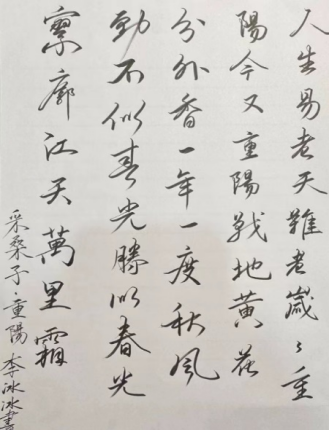 人生易老天難老歲〻重
陽今又重陽戰地黄花
分外香一年一度秋風
勁不似春光勝似春光
寥廓江天萬里霜
采桑子·重陽 李冰冰書